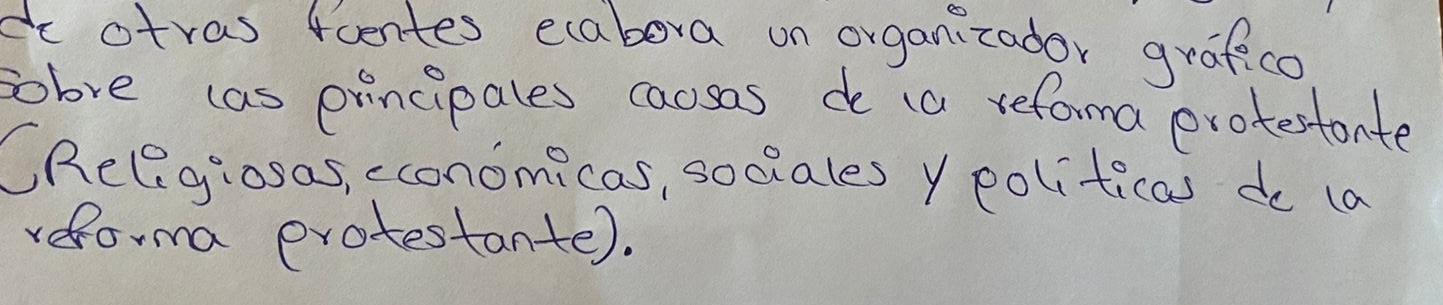 de otras fuentes elabora un organizador gráfico
sobre las principales causas de la reforma protestante
(Religiosas, económicas, sociales y políticas de la
reforma protestante).